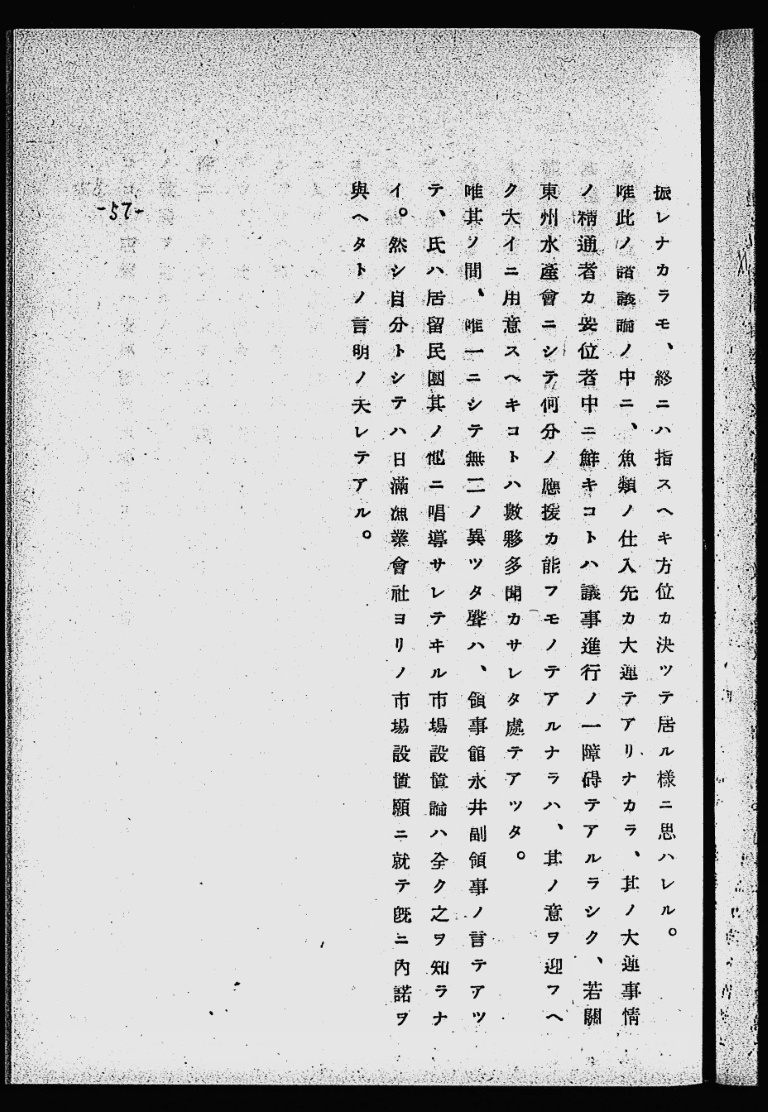 振レナカラモ、終ニハ指スヘキ方位カ決ツテ居ル様ニ思ハレル。
唯此ノ諸議論ノ中ニ、魚類ノ仕入先カ大連テアリナカラ、其ノ大連事情
ノ精通者カ委位者中ニ鮮キコトハ議事進行ノ一障碍テアルラシク、若關
東州水產會ニシテ何分ノ應援カ能フモノテアルナラハ、其ノ意ヲ迎フヘ
ク大イニ用意スヘキコトハ數夥多聞カサレタ處テアツタ。
唯其ノ間、唯一ニシテ無二ノ異ツタ聲ハ、領事館永井副領事ノ言テアツ
テ、氏ハ居留民團其ノ他ニ唱導サレテヰル市場設置論ハ全ク之ヲ知ラナ
イ。然シ自分トシテハ日滿漁業會社ヨリノ市場設置願ニ就テ既ニ內諾ヲ
與ヘタトノ言明ノ夫レテアル。
-57-